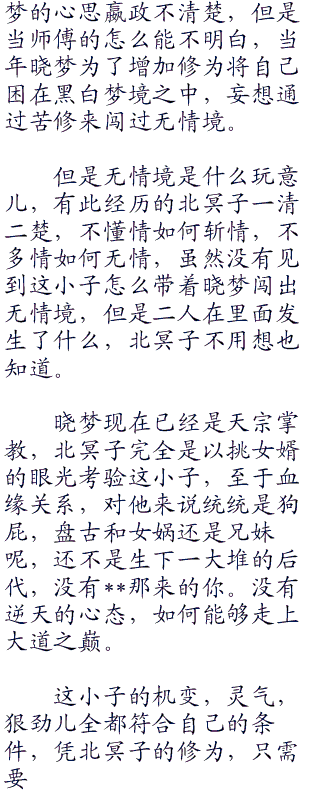 梦的心思嬴政不清楚，但是
当师傅的怎么能不明白，当
年晓梦为了增加修为将自己
困在黑白梦境之中，妄想通
过苦修来闯过无情境。
但是无情境是什么玩意
儿，有此经历的北冥子一清
二楚，不懂情如何斩情，不
多情如何无情，虽然没有见
到这小子怎么带着晓梦闯出
无情境，但是二人在里面发
生了什么，北冥子不用想也
知道。
晓梦现在已经是天宗掌
教，北冥子完全是以挑女婿
的眼光考验这小子，至于血
缘关系，对他来说统统是狗
屁，盘古和女娲还是兄妹
呢，还不是生下一大堆的后
代，没有**那来的你。没有
逆天的心态，如何能够走上
大道之巅。
这小子的机变，灵气，
狠劲儿全都符合自己的条
件，凭北冥子的修为，只需
要